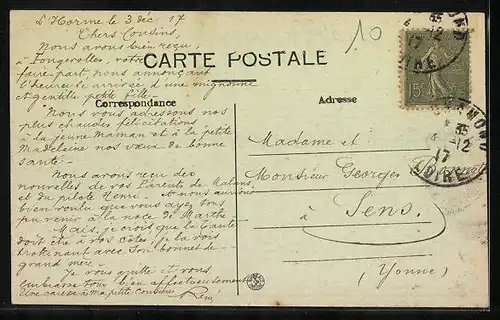 L'Horme le 3 déc 17
Chers Cousins,
Nous avons bien reçu,
à Fongerolles, votre
faire-part, nous annonçant
l'heureuse arrivée d'une mignonne
et gentille petite fille.
Nous vous adressons nos
plus chaudes félicitations
à la jeune Maman et à la petite
Madeleine nos vœux de bonne
santé.
Nous avons reçu des
nouvelles de vos Parents de
et du pilote Henri et nous aurions
bien voulu que vous ayez tous
pu venir à la noce de Marthe
Mais, je crois que la Tante
doit être à vos côtés, je la vois
avec son bonnet de
grand'mère.
Je vous quitte et vous
embrasse tous bien affectueusement
Une caresse à ma petite cousine René
10
CARTE POSTALE
Correspondance
Adresse
Madame et
Monsieur Georges
à
Sens.
(Yonne)
15c
17
LOIRE